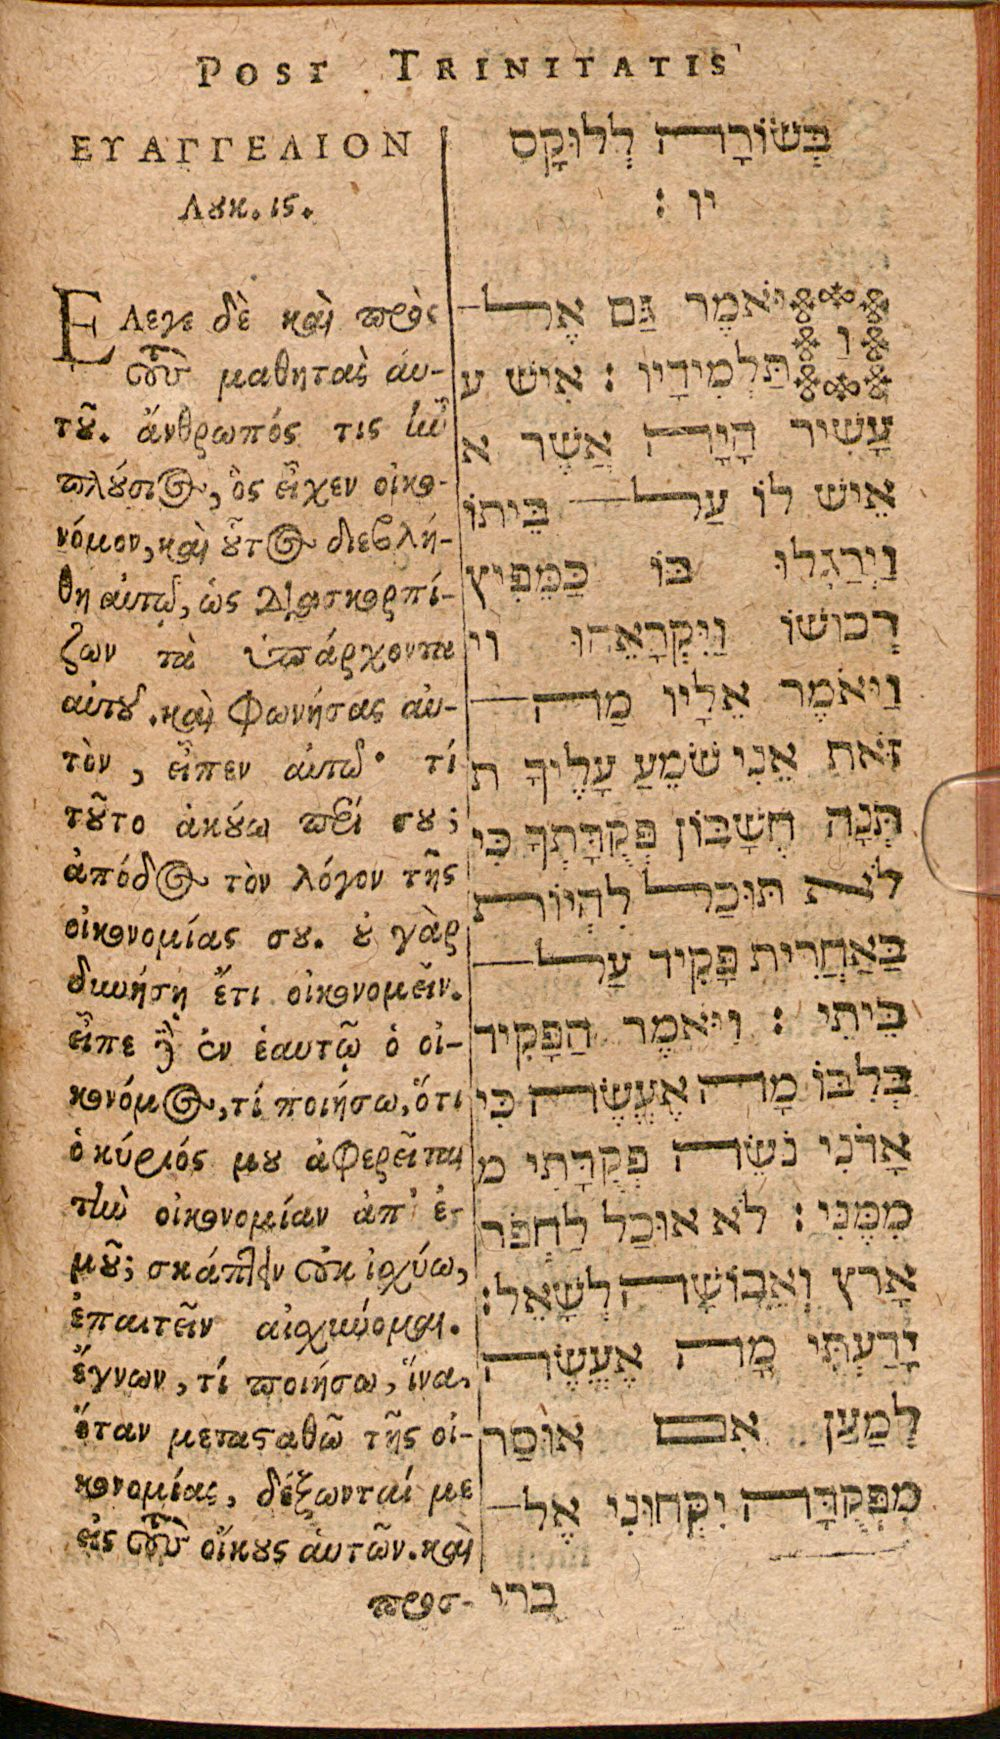 POST TRINITATIS
ΕΥΑΓΓΕΛΙΟΝ
Λουκ. ις.
Ελεγε δὲ καὶ πρὸς
τοὺς μαθητὰς ἁυ-
τοῦ. ἄνθρωπός τις ἦν
πλούσιος, ὃς εἶχεν οἰκο-
νόμον, καὶ οὗτος διεβλή-
θη αὐτῷ, ὡς διασκορπί-
ζων τὰ ὑπάρχοντα
αὐτοῦ. καὶ φωνήσας αὐ-
τὸν, εἶπεν αὐτῷ· τί
τοῦτο ἀκούω περὶ σου;
ἀπόδος τὸν λόγον τῆς
οἰκονομίας σου. οὐ γὰρ
δυνήσῃ ἔτι οἰκονομεῖν.
εἶπε δὲ ἐν ἑαυτῷ ὁ οἰ-
κονόμος, τί ποιήσω, ὅτι
ὁ κύριός μου ἀφερεῖται
τὴν οἰκονομίαν ἀπ' ἐ-
μοῦ; σκάπτειν οὐκ ἰσχύω,
ἐπαιτεῖν αἰσχύνομαι.
ἔγνων, τί ποιήσω, ἵνα,
ὅταν μετασταθῶ τῆς οἰ-
κονομίας, δέξωνταί με
εἰς τοὺς οἴκους ἁυτῶν. καὶ
προσ-
בְּשׂוֹרָה לְלוּקָס
יו :
וַיֹּאמֶר גַּם אֶל־
תַּלְמִידָיו : אִישׁ ע
עָשִׁיר הָיָה אֲשֶׁר א
אֵישׁ לוֹ עַל־ בֵּיתוֹ
וַיְרַגְּלוּ בּוֹ כַּמֵּפִיץ
רְכוּשׁוֹ וַיִּקְרָאֵהוּ וי
וַיֹּאמֶר אֵלָיו מַה־
זֹּאת אֲנִי שֹׁמֵעַ עָלֶיךָ ת
תְּנָה חֶשְׁבּוֹן פְּקֻדָּתְךָ כִּי
לֹא תוּכַל לִהְיוֹת
בַּאַחֲרִית פָּקִיד עַל־
בֵּיתִי : וַיֹּאמֶר הַפָּקִיד
בְּלִבּוֹ מָה אֶעֱשֶׂה כִּי
אֲדֹנִי נֹשֵׂה פְקֻדָּתִי מ
מִמֶּנִּי : לֹא אוּכַל לַחְפֹּר
אָרֶץ וְאֵבוֹשָׁה לִשְׁאֵל :
יָדַעְתִּי מָה אֶעֱשֶׂה
לְמַעַן אִם אוּסַר
מִפְּקֻדָּה יִקְּחוּנִי אֶל־
ברי